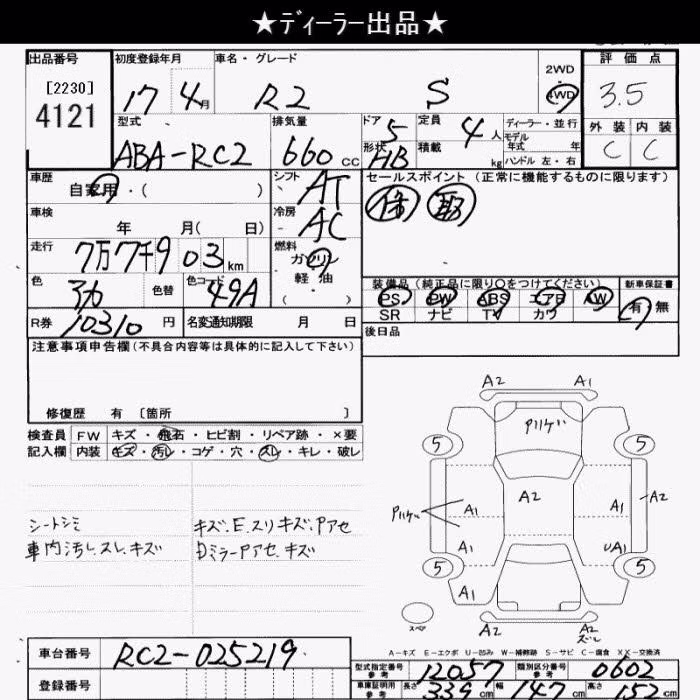 ★ディーラー出品★
出品番号 初度登録年月 車名・グレード 評価点
[2230]
4121
17 4月 R2 S 2WD 4WD 3.5
型式 排気量 ドア 定員 ディーラー・並行 外装 内装
ABA-RC2 660cc 5 4人 モデル年式 年 C C
形状 HB 積載 kg ハンドル 左・右
車歴 シフト セールスポイント(正常に機能するものに限ります)
自家用・( ) AT
車検 冷房
年 月( 日) AC
走行 燃料
7万7千903km ガソリン
軽油
( )
色 色替 色コード 装備品(純正品に限り○をつけてください) 新車保証書
49A PS PW ABS エアB AW 有 無
SR ナビ TV カワ
R券 10310円 名変通知期限 月 日 後日品
注意事項申告欄(不具合内容等は具体的に記入して下さい)
修復歴 有 [箇所 ]
検査員 FW キズ・飛石・ヒビ割・リペア跡・×要
記入欄 内装 キズ・汚レ・コゲ・穴・スレ・キレ・破レ
シートシミ キズ、E、スリキズ、Pアセ
車内汚レ、スレ、キズ DミラーPアセ、キズ
A2 A1
Pハゲ
5 5
A2 A1 A2
Pハゲ A1
A1 UA1
5 5
A1
スペア A2 A2
ズレ
A-キズ E-エクボ U-凹み W-補修跡 S-サビ C-腐食 XX-交換済
車台番号 RC2-025219
型式指定番号 参考 12057 類別区分番号 参考 0602
登録番号 車庫証明用 参考 長さ 339cm 幅 147cm 高さ 152cm